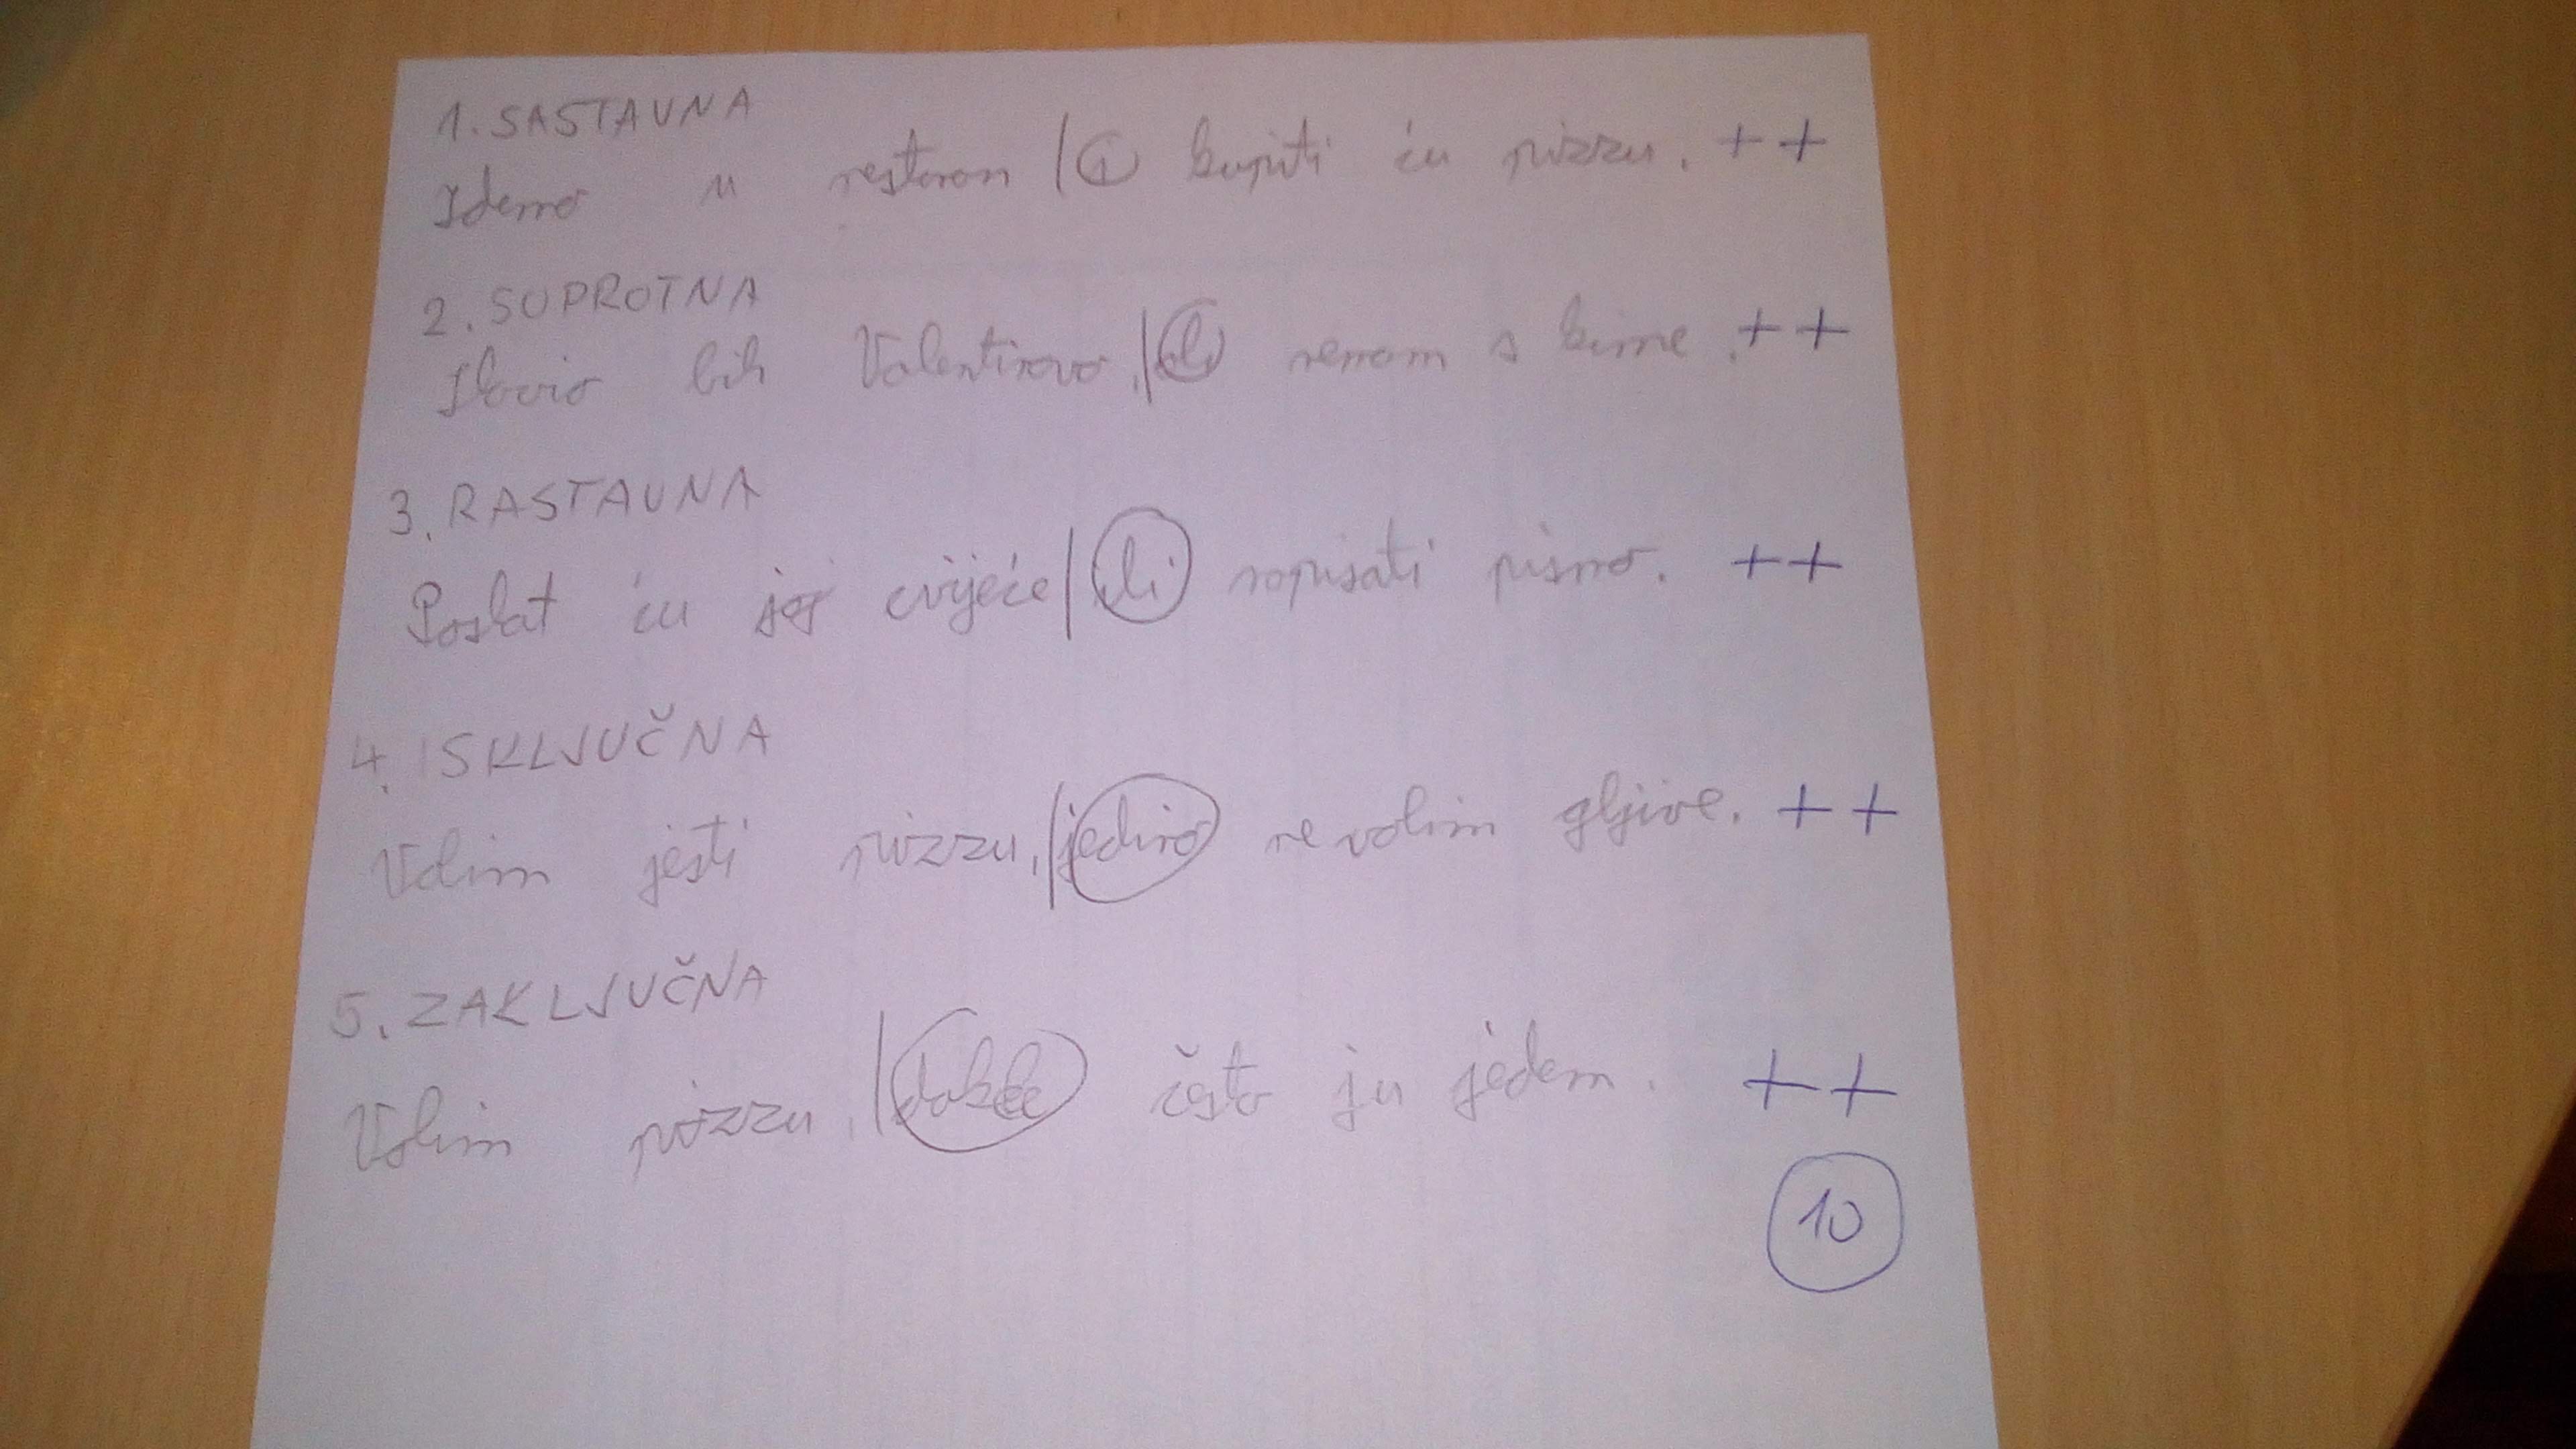 1. SASTAVNA
Idemo u restoran | i kupiti ću pizzu. ++
2. SUPROTNA
Slavio bih Valentinovo, | ali nemam s kime. ++
3. RASTAVNA
Poslat ću joj cvijeće | ili napisati pismo. ++
4. ISKLJUČNA
Volim jesti pizzu, | jedino ne volim gljive. ++
5. ZAKLJUČNA
Volim pizzu, | dakle često ju jedem. ++
10